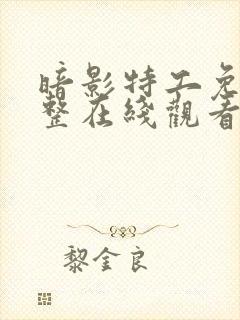 暗影特工免
整在线觀看
黎金良